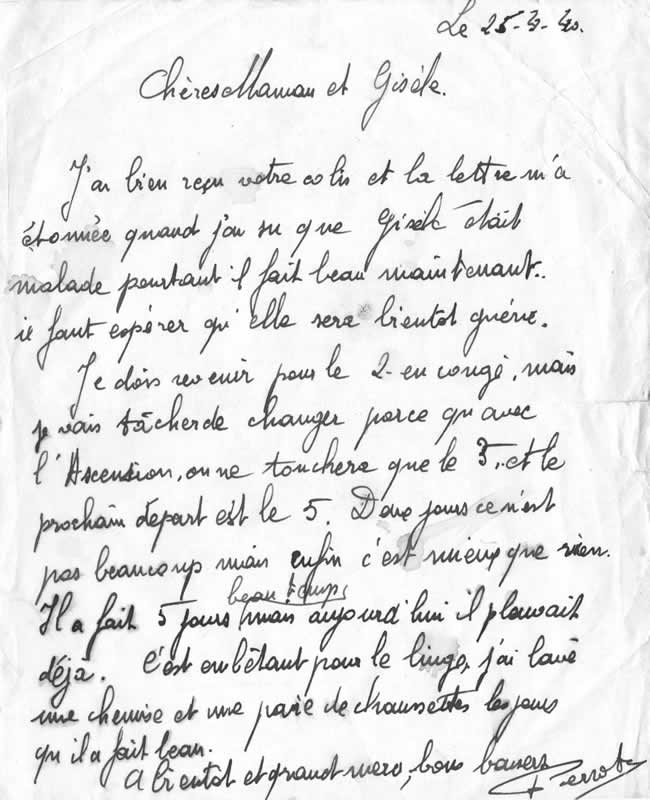 Le 25-4-40.
Chères Maman et Gisèle.
J'ai bien reçu votre colis et la lettre m'a
étonnée quand j'ai su que Gisèle était
malade pourtant il fait beau maintenant..
il faut espérer qu'elle sera bientot guérie.
Je dois revenir pour le 2 en congé, mais
je vais tâcher de changer parce qu'avec
l'Ascension, on ne touchera que le 3, et le
prochain départ est le 5. Deux jours ce n'est
pas beaucoup mais enfin c'est mieux que rien.
beau temps
Il a fait 5 jours mais aujourd'hui il pleuvait
déjà. C'est embêtant pour le linge, j'ai lavé
une chemise et une paire de chaussettes les jours
qu'il a fait beau.
A bientot et grand merci, bons baisers
Perrot